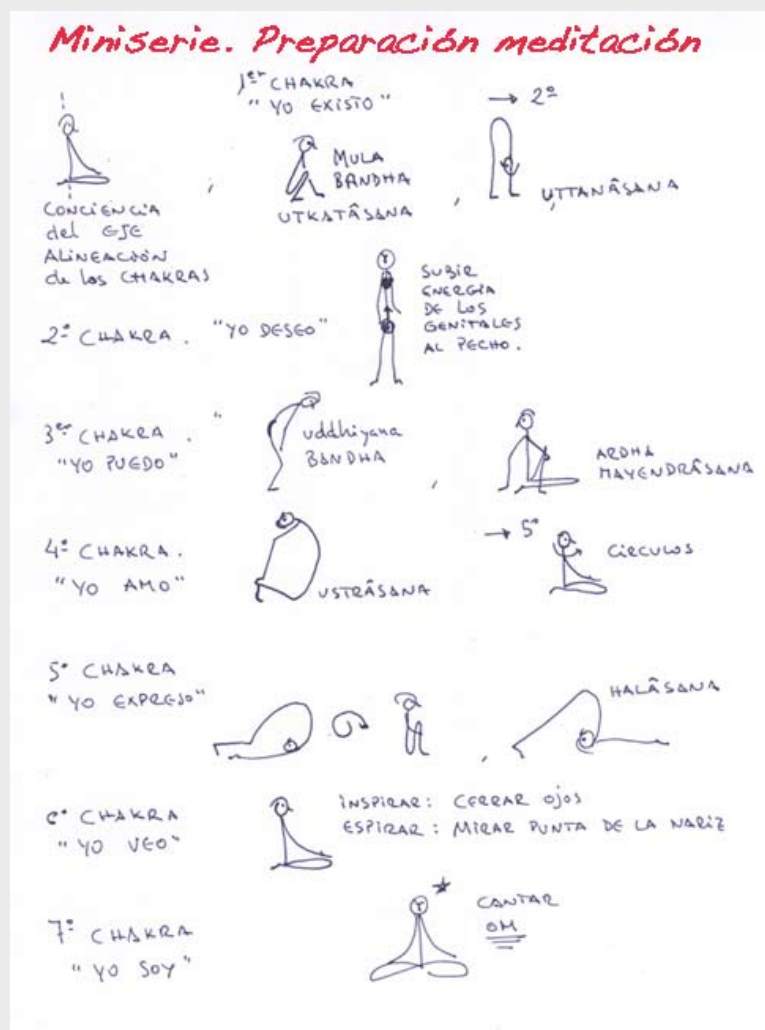 Miniserie. Preparación meditación
1er CHAKRA
"YO EXISTO"
→ 2º
MULA
BANDHA
UTKATÂSANA
,
,
UTTANÂSANA
CONCIENCIA
del EJE
ALINEACIÓN
de los CHAKRAS
2º CHAKRA. "YO DESEO"
SUBIR
ENERGÍA
DE LOS
GENITALES
AL PECHO.
3er CHAKRA. "
"YO PUEDO"
uddhiyana
BANDHA
,
ARDHA
MAYENDRÂSANA
4º CHAKRA.
"YO AMO"
USTRÂSANA
→ 5º
CÍRCULOS
5º CHAKRA
"YO EXPRESO"
,
HALÂSANA
6º CHAKRA
"YO VEO"
INSPIRAR: CERRAR OJOS
ESPIRAR: MIRAR PUNTA DE LA NARIZ
7º CHAKRA
"YO SOY"
CANTAR
OM